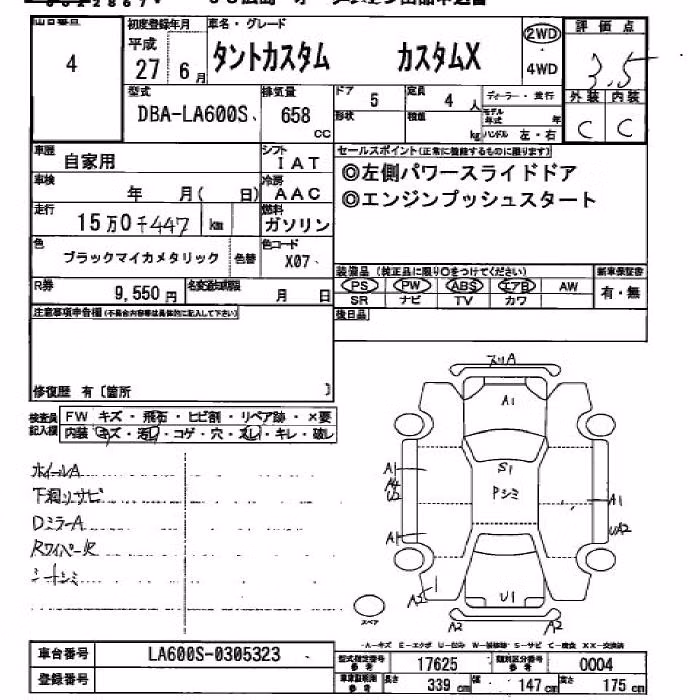 車名・グレード
初度登録年月
4
平成
27 6月
タントカスタム カスタムX
2WD
4WD
評価点
3.5
外装 内装
C C
型式
DBA-LA600S
排気量
658 cc
ドア 5
定員 4 人
形状
積載 kg
ディーラー・並行
モデル年式 年
ハンドル 左・右
車歴 自家用
シフト IAT
車検 年 月( 日)
冷房 AAC
走行 15万0千447 km
燃料 ガソリン
色 ブラックマイカメタリック 色替
色コード X07
R券 9,550円
名変通知期限 月 日
セールスポイント(正常に機能するものに限ります)
◎左側パワースライドドア
◎エンジンプッシュスタート
装備品(検正品に限り○をつけてください)
新車保証書
PS PW ABS エアB AW
SR ナビ TV カワ
有・無
後日品
注意事項申告欄(不具合内容等は具体的に記入して下さい)
修復歴 有〔箇所 〕
検査員記入欄
FW キズ・飛石・ヒビ割・リペア跡・×要
内装 キズ・汚レ・コゲ・穴・スレ・キレ・破レ
ホイールA
下廻りサビ
DミラーA
Rワイパー欠
シートシミ
スリA
A1
S1
Pシミ
A1
A4
U2
A1
A1
UA2
U1
A2
A2
スペア
A-キズ E-エクボ U-凹み W-補修跡 S-サビ C-腐食 XX-交換済
車台番号 LA600S-0305323
登録番号
型式指定番号 参考 17625
類別区分番号 参考 0004
長さ 339 cm
幅 147 cm
高さ 175 cm